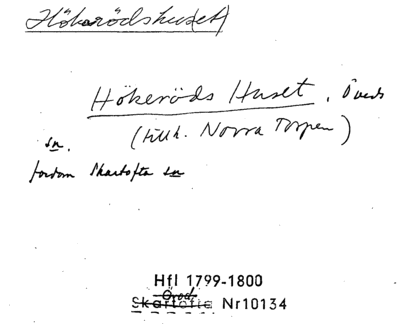 Hökerödshus(et)
Hökeröds Huset, Öveds
(tillh. Norra Torpen)
sn.
fordom Skartofta sn
Hfl 1799-1800
Öved.
Skartofta Nr10134